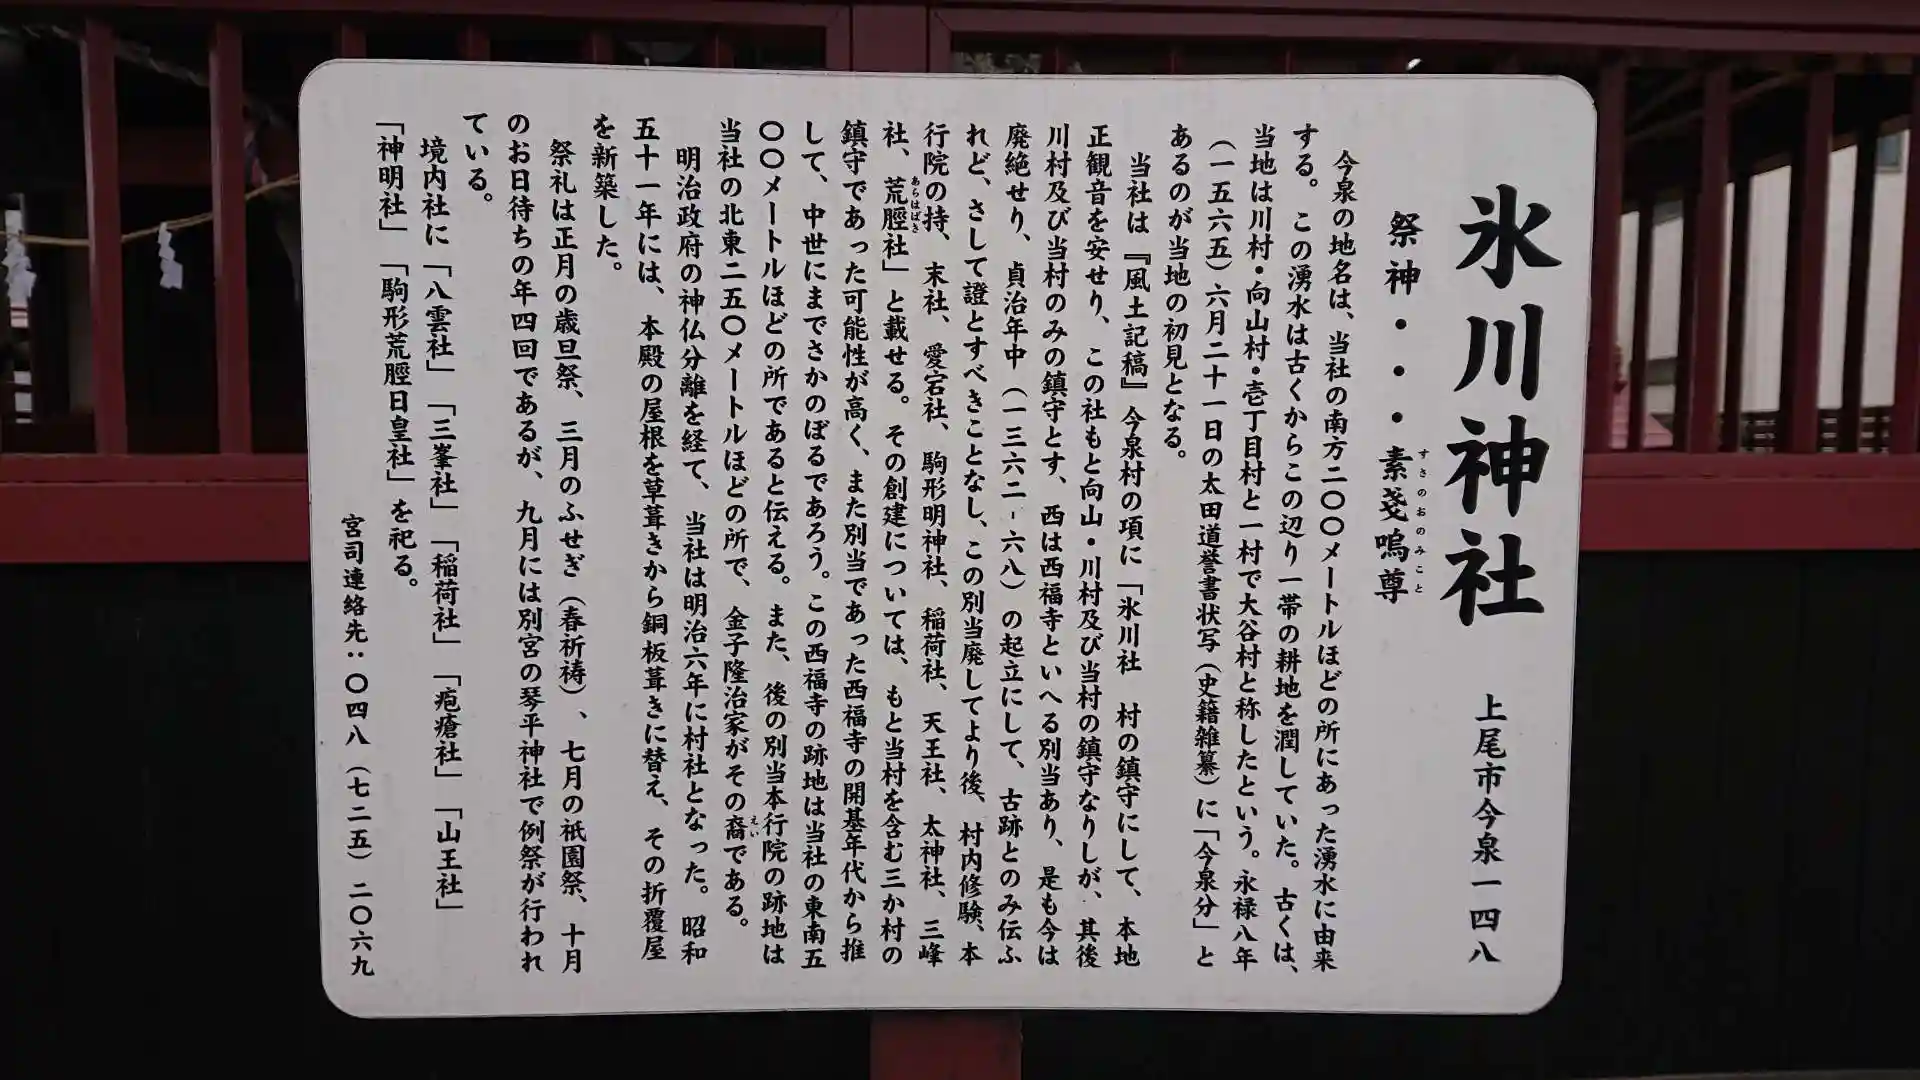 氷川神社 上尾市今泉一四八
祭神・・・素戔嗚尊
すさのおのみこと
今泉の地名は、当社の南方二〇〇メートルほどの所にあった湧水に由来
する。この湧水は古くからこの辺り一帯の耕地を潤していた。古くは、
当地は川村・向山村・壱丁目村と一村で大谷村と称したという。永禄八年
(一五六五)六月二十一日の太田道誉書状写(史籍雑纂)に「今泉分」と
あるのが当地の初見となる。
当社は『風土記稿』今泉村の項に「氷川社 村の鎮守にして、本地
正観音を安せり、この社もと向山・川村及び当村の鎮守なりしが、其後
川村及び当村のみの鎮守とす、西は西福寺といへる別当あり、是も今は
廃絶せり、貞治年中(一三六二-六八)の起立にして、古跡とのみ伝ふ
れど、さして證とすべきことなし、この別当廃してより後、村内修験、本
行院の持、末社、愛宕社、駒形明神社、稲荷社、天王社、太神社、三峰
社、荒脛社」と載せる。その創建については、もと当村を含む三か村の
あらはばき
鎮守であった可能性が高く、また別当であった西福寺の開基年代から推
して、中世にまでさかのぼるであろう。この西福寺の跡地は当社の東南五
〇〇メートルほどの所であると伝える。また、後の別当本行院の跡地は
当社の北東二五〇メートルほどの所で、金子隆治家がその裔である。
えい
明治政府の神仏分離を経て、当社は明治六年に村社となった。昭和
五十一年には、本殿の屋根を草葺きから銅板葺きに替え、その折覆屋
を新築した。
祭礼は正月の歳旦祭、三月のふせぎ(春祈祷)、七月の祇園祭、十月
のお日待ちの年四回であるが、九月には別宮の琴平神社で例祭が行われ
ている。
境内社に「八雲社」「三峯社」「稲荷社」「疱瘡社」「山王社」
「神明社」「駒形荒脛日皇社」を祀る。
宮司連絡先:〇四八(七二五)二〇六九